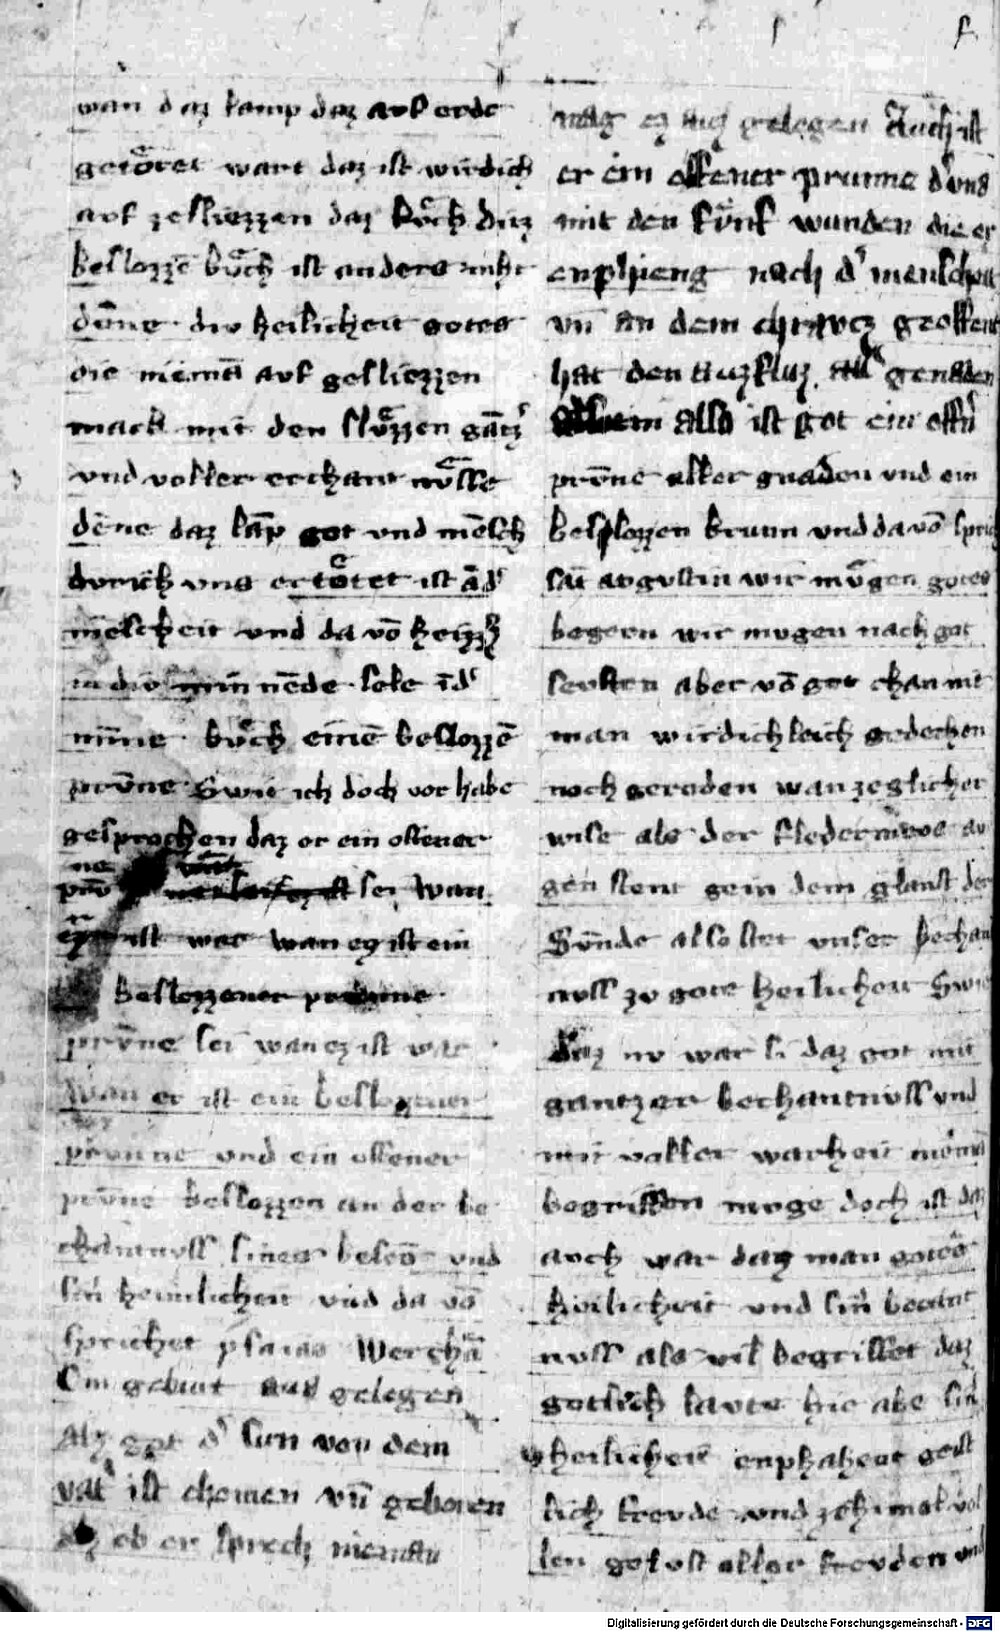 wan daz lamp daz auf erde
getoͤtet wart daz ist wirdich
auf zesliezzen daz buͦch ditz
beslozzē buͦch ist anders niht
dēne div heilicheit gotes
die niemā auf gesliezzen
mack mit den sluͤzzen gātz
und voller erchant nuͤsse
dēne daz lāp got und mēsch
durich uns ertoͤtet ist
mēscheit und da vō heizz
in div min nēde sele
minne buͦch einē beslozzē
prūne Swie ich doch vor habe
gesprochen daz er ein offener
sei wan
ist war wan ez ist ein
beslozzener prunne
prūne sei wan ez ist war
wan er ist ein beslozener
prunne und ein offener
prūne beslozzen an der be
chantnuss sines und
sin heimlichen und da vō
sprichet ysaias Wer chā
Sin geburt aus gelegen
Alz got d' sun von dem
vat' ist chomen vn̄ geboren
alz ob er sprech niemā
mag ez auz gelegen Auch ist
er ein offener prunne d' uns
mit den fünf wunden die er
enphieng nach d' menscheit
vn̄ an dem chravcz geoffent
hat den auzfluz genaden
also ist got ein offn'
prūne aller gnaden und ein
besplozzen brunn und da vō
sāt augustin wir muͤgen gotes
begern wir mugen nach got
seuften aber vō got chan nit
man wirdichleich gedechen
noch gereden wan zeglicher
wise als der fledermeuse au
gen stent gein dem glanst der
Sūnde also stet unser bechan
nuss zu gotes heilicheit Swie
daz nu war si daz got mit
gantzer bechantnuss und
mit voller warheit
begriffen muge doch ist daz
auch war daz man gotes
heilicheit und sin
nuss als vil begriffet daz
gotlich laute hie abe
heilicheit enphahent geist
lich freude und zehimel vol
len gelust aller freuden und
Digitalisierung gefördert durch die Deutsche Forschungsgemeinschaft - DFG